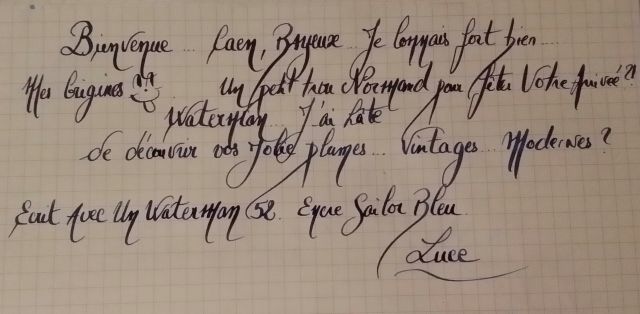 Bienvenue... Caen, Bayeux... Je connais fort bien....
Mes Origines ?? ... Un petit trou Normand pour fêter Votre Arrivée ?!
Waterman... J'ai hâte
de découvrir vos Jolies plumes... Vintages... Modernes ?
Ecrit Avec Un Waterman 52. Encre Sailor Bleu
Luce